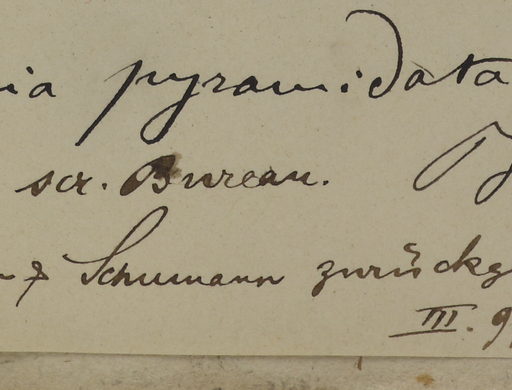 ia pyramidata
scr. Bureau.
Schumann zurückg
III. 9